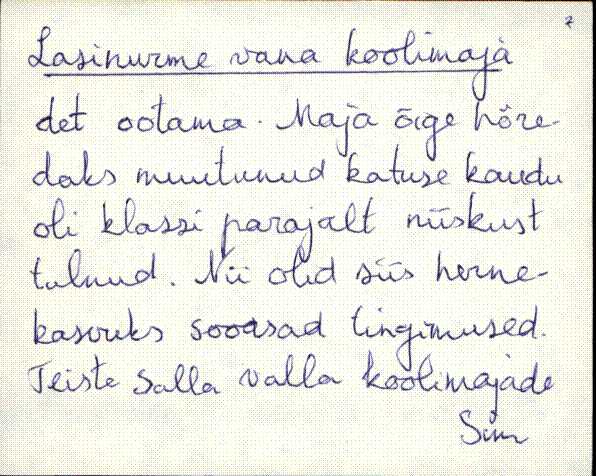 2
Lasinurme vana koolimaja
det ootama. Maja õige hõre-
daks muutunud katuse kaudu
oli klassi parajalt niiskust
tulnud. Nii olid siis herne-
kasvuks soodsad tingimused.
Teiste Salla valla koolimajade